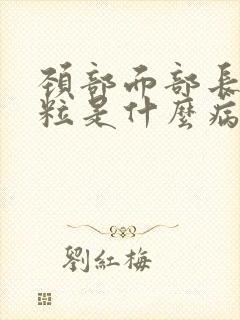 頸部而部長
粒是什麼病
劉紅梅